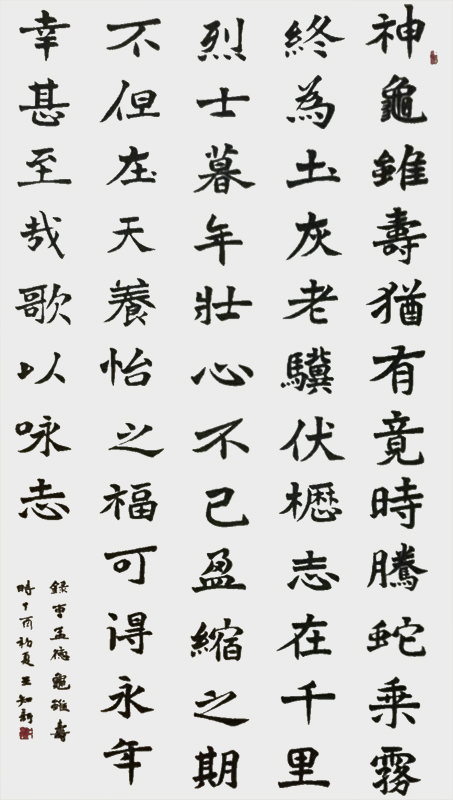 神龜雖壽猶有竟時騰蛇乘霧
終為土灰老驥伏櫪志在千里
烈士暮年壯心不已盈縮之期
不但在天養怡之福可得永年
幸甚至哉歌以咏志
錄曹孟德龜雖壽
時丁酉初夏王知新